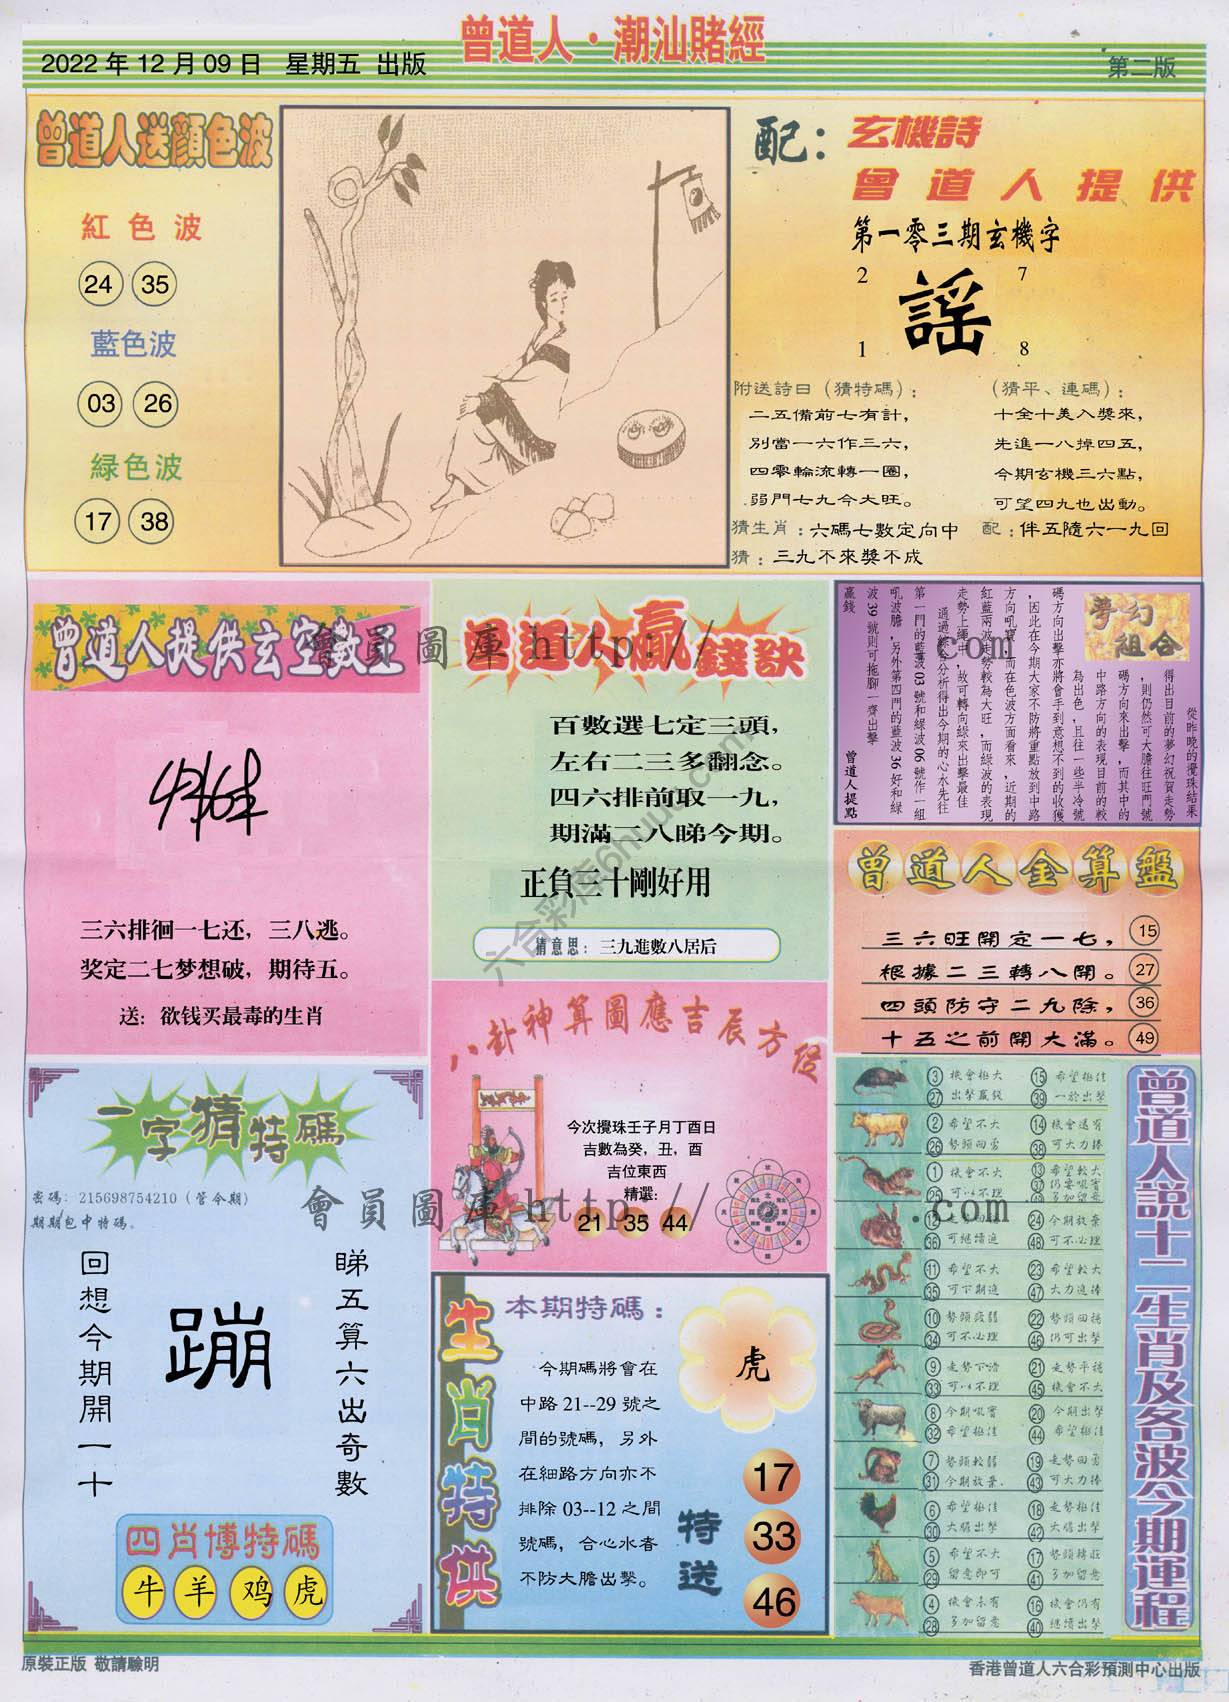 曾道人·潮汕賭經
2022 年 12 月 09 日 星期五 出版
第二版
曾道人送顏色波
紅色波
24 35
藍色波
03 26
緑色波
17 38
配：玄機詩
曾道人提供
第一零三期玄機字
2 7
謡
1 8
附送詩曰（猜特碼）：
二五備前七有計，
別當一六作三六，
四零輪流轉一圈，
弱門七九今大旺。
（猜平、連碼）：
十全十美入獎來，
先進一八掉四五，
今期玄機三六點，
可望四九也出動。
猜生肖：六碼七數定向中
配：伴五隨六一九回
猜：三九不來獎不成
曾道人提供玄空數王
三六排徊一七还，三八逃。
奖定二七梦想破，期待五。
送：欲钱买最毒的生肖
曾道人贏錢訣
百數選七定三頭，
左右二三多翻念。
四六排前取一九，
期滿二八睇今期。
正負三十剛好用
猜意思：三九進數八居后
會員圖庫 http://
com
六合彩库6huuu.com
夢幻
組合
從昨晚的攪珠結果
得出目前的夢幻祝賀走勢
，則仍然可大膽往旺門號
碼方向來出擊，而其中的
中路方向的表現目前的較
為出色，且往一些半冷號
碼方向出擊亦將會手到意想不到的收獲
，因此在今期大家不防將重點放到中路
方向吼寶，而在色波方面看來，近期的
紅藍兩波走勢較為大旺，而綠波的表現
走勢上繩中，故可轉向綠來出擊最佳
通過綜合分析得出今期的心水先往
第一門的藍波 03 號和綠波 06 號作一組
吼波膽，另外第四門的藍波 36 好和綠
波 39 號則可拖腳一齊出擊
贏錢
曾道人提點
曾道人金算盤
三六旺開定一七， 15
根據二三轉八開。 27
四頭防守二九除， 36
十五之前開大滿。 49
八卦神算圖應吉辰方位
今次攪珠壬子月丁酉日
吉數為癸，丑，酉
吉位東西
精選：
21 35 44
會員圖庫 http://
.com
一字猜特碼
密碼：215698754210（管今期）
期期包中特碼。
睇五算六出奇數
蹦
回想今期開一十
四肖博特碼
牛 羊 鸡 虎
生肖特供
本期特碼：
虎
今期碼將會在
中路 21--29 號之
間的號碼，另外
在細路方向亦不
排除 03--12 之間
號碼，合心水者
不防大膽出擊。
特送
17
33
46
曾道人說十二生肖及各波今期運程
3 機會極大 15 希望極佳
27 出擊贏錢 39 一於出擊
2 希望不大 14 機會還有
26 勢頭回勇 38 可大力捧
1 機會不大 13 希望較大
可以不理
多加留意
24 今期放棄
36 可繼續追 48 可不必理
11 希望不大 23 希望較大
35 可下期追 47 大力追捧
10 勢頭疲弱 22 勢頭回穩
34 可不必理 46 仍可出擊
9 走勢下滑 21 走勢平穩
33 可以不理 45 機會不大
8 今期吼寶 20 今期出擊
32 希望極佳 44 希望極佳
7 勢頭較弱 19 走勢回勇
31 今期放棄. 43 可大力捧
6 希望極佳 18 走勢極佳
30 大膽出擊 42 大膽出擊
5 希望不大 17 勢頭轉旺
29 留意即可 41 多加留意
4 機會未有 16 機會仍有
28 多加留意 40 繼續出擊
原裝正版 敬請驗明
香港曾道人六合彩預測中心出版